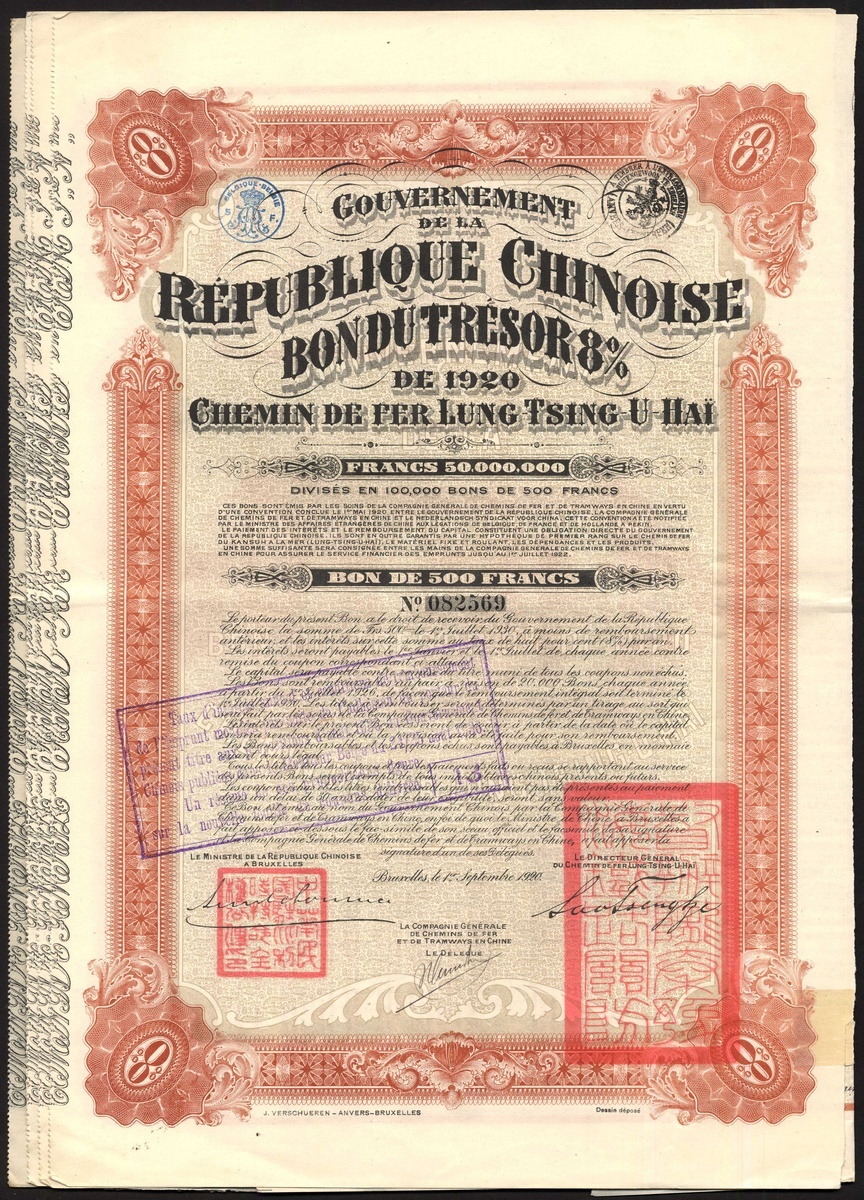 BELGIQUE-BELGIË
S. F.
GOUVERNEMENT
DE LA
RÉPUBLIQUE CHINOISE
BON DU TRÉSOR 8%
DE 1920
CHEMIN DE FER LUNG-TSING-U-HAÏ
FRANCS 50.000.000
DIVISÉS EN 100,000 BONS DE 500 FRANCS
CES BONS SONT ÉMIS PAR LES SOINS DE LA COMPAGNIE GÉNÉRALE DE CHEMINS DE FER ET DE TRAMWAYS EN CHINE EN VERTU
D'UNE CONVENTION CONCLUE LE 1ER MAI 1920, ENTRE LE GOUVERNEMENT DE LA RÉPUBLIQUE CHINOISE, LA COMPAGNIE GÉNÉRALE
DE CHEMINS DE FER ET DE TRAMWAYS EN CHINE ET LE NEDERLANDSCH SYNDICAAT VOOR CHINA ET CONVENTION A ÉTÉ NOTIFIÉE
PAR LE MINISTRE DES AFFAIRES ÉTRANGÈRES DE CHINE AUX LÉGATIONS DE BELGIQUE, DE FRANCE ET DE HOLLANDE À PÉKIN.
LE PAIEMENT DES INTÉRÊTS ET LE REMBOURSEMENT DU CAPITAL CONSTITUENT UNE OBLIGATION DIRECTE DU GOUVERNEMENT
DE LA RÉPUBLIQUE CHINOISE. ILS SONT EN OUTRE GARANTIS PAR UNE HYPOTHÈQUE DE PREMIER RANG SUR LE CHEMIN DE FER
DU KANSUH A LA MER (LUNG-TSING-U-HAÏ), LE MATÉRIEL FIXE ET ROULANT, LES DÉPENDANCES ET LES PRODUITS.
UNE SOMME SUFFISANTE SERA CONSIGNÉE ENTRE LES MAINS DE LA COMPAGNIE GÉNÉRALE DE CHEMINS DE FER ET DE TRAMWAYS
EN CHINE POUR ASSURER LE SERVICE FINANCIER DES EMPRUNTS JUSQU'AU 1ER JUILLET 1922.
BON DE 500 FRANCS
No 082569
Le porteur du présent Bon a le droit de recevoir du Gouvernement de la République
Chinoise la somme de Frs 500 le 1er Juillet 1930, à moins de remboursement
antérieur, et les intérêts sur cette somme au taux de huit pour cent (8%) par an.
Les intérêts seront payables le 1er Janvier et le 1er Juillet de chaque année contre
remise du coupon correspondant ci-attaché.
Le capital sera payable contre remise du titre muni de tous les coupons non échus.
Les Bons sont remboursables au pair à raison de 20.000 Bons chaque année
à partir du 1er Juillet 1926, de façon que le remboursement intégral soit terminé le
1er Juillet 1930. Les titres à rembourser seront déterminés par un tirage au sort qui
sera fait par les soins de la Compagnie Générale de Chemins de fer et de Tramways en Chine.
Les intérêts du présent Bon cesseront de courir à partir de la date où le capital
sera remboursable et où la provision aura été faite pour son remboursement.
Les Bons remboursables et les coupons échus sont payables à Bruxelles en monnaie
ayant cours légal.
Tous les titres, tous les coupons et tous paiements faits ou reçus se rapportant au service
des présents Bons sont exempts de tous impôts chinois présents ou futurs.
Les coupons échus et les titres remboursables qui n'auront pas été présentés au paiement
dans un délai de 30 ans à dater de leur exigibilité, seront sans valeur.
Ce Bon est émis au nom du Gouvernement Chinois par la Compagnie Générale de
Chemins de fer et de Tramways en Chine, en foi de quoi le Ministre de Chine, à Bruxelles a
fait apposer ci-dessous le fac-similé de son sceau officiel et le facsimilé de sa signature
et la Compagnie Générale de Chemins de fer et de Tramways en Chine, y a fait apposer la
signature d'un de ses Délégués.
Taux d'in
de l'emprunt mo
présent titre aux
Chinois publiées
Un résumé
sur la nou
15
LE MINISTRE DE LA RÉPUBLIQUE CHINOISE
A BRUXELLES
LE DIRECTEUR GÉNÉRAL
DU CHEMIN DE FER LUNG-TSING-U-HAÏ
Bruxelles, le 1er Septembre 1920.
LA COMPAGNIE GÉNÉRALE
DE CHEMINS DE FER
ET DE TRAMWAYS EN CHINE
LE DÉLÉGUÉ
J. VERSCHUEREN - ANVERS-BRUXELLES
Dessin déposé